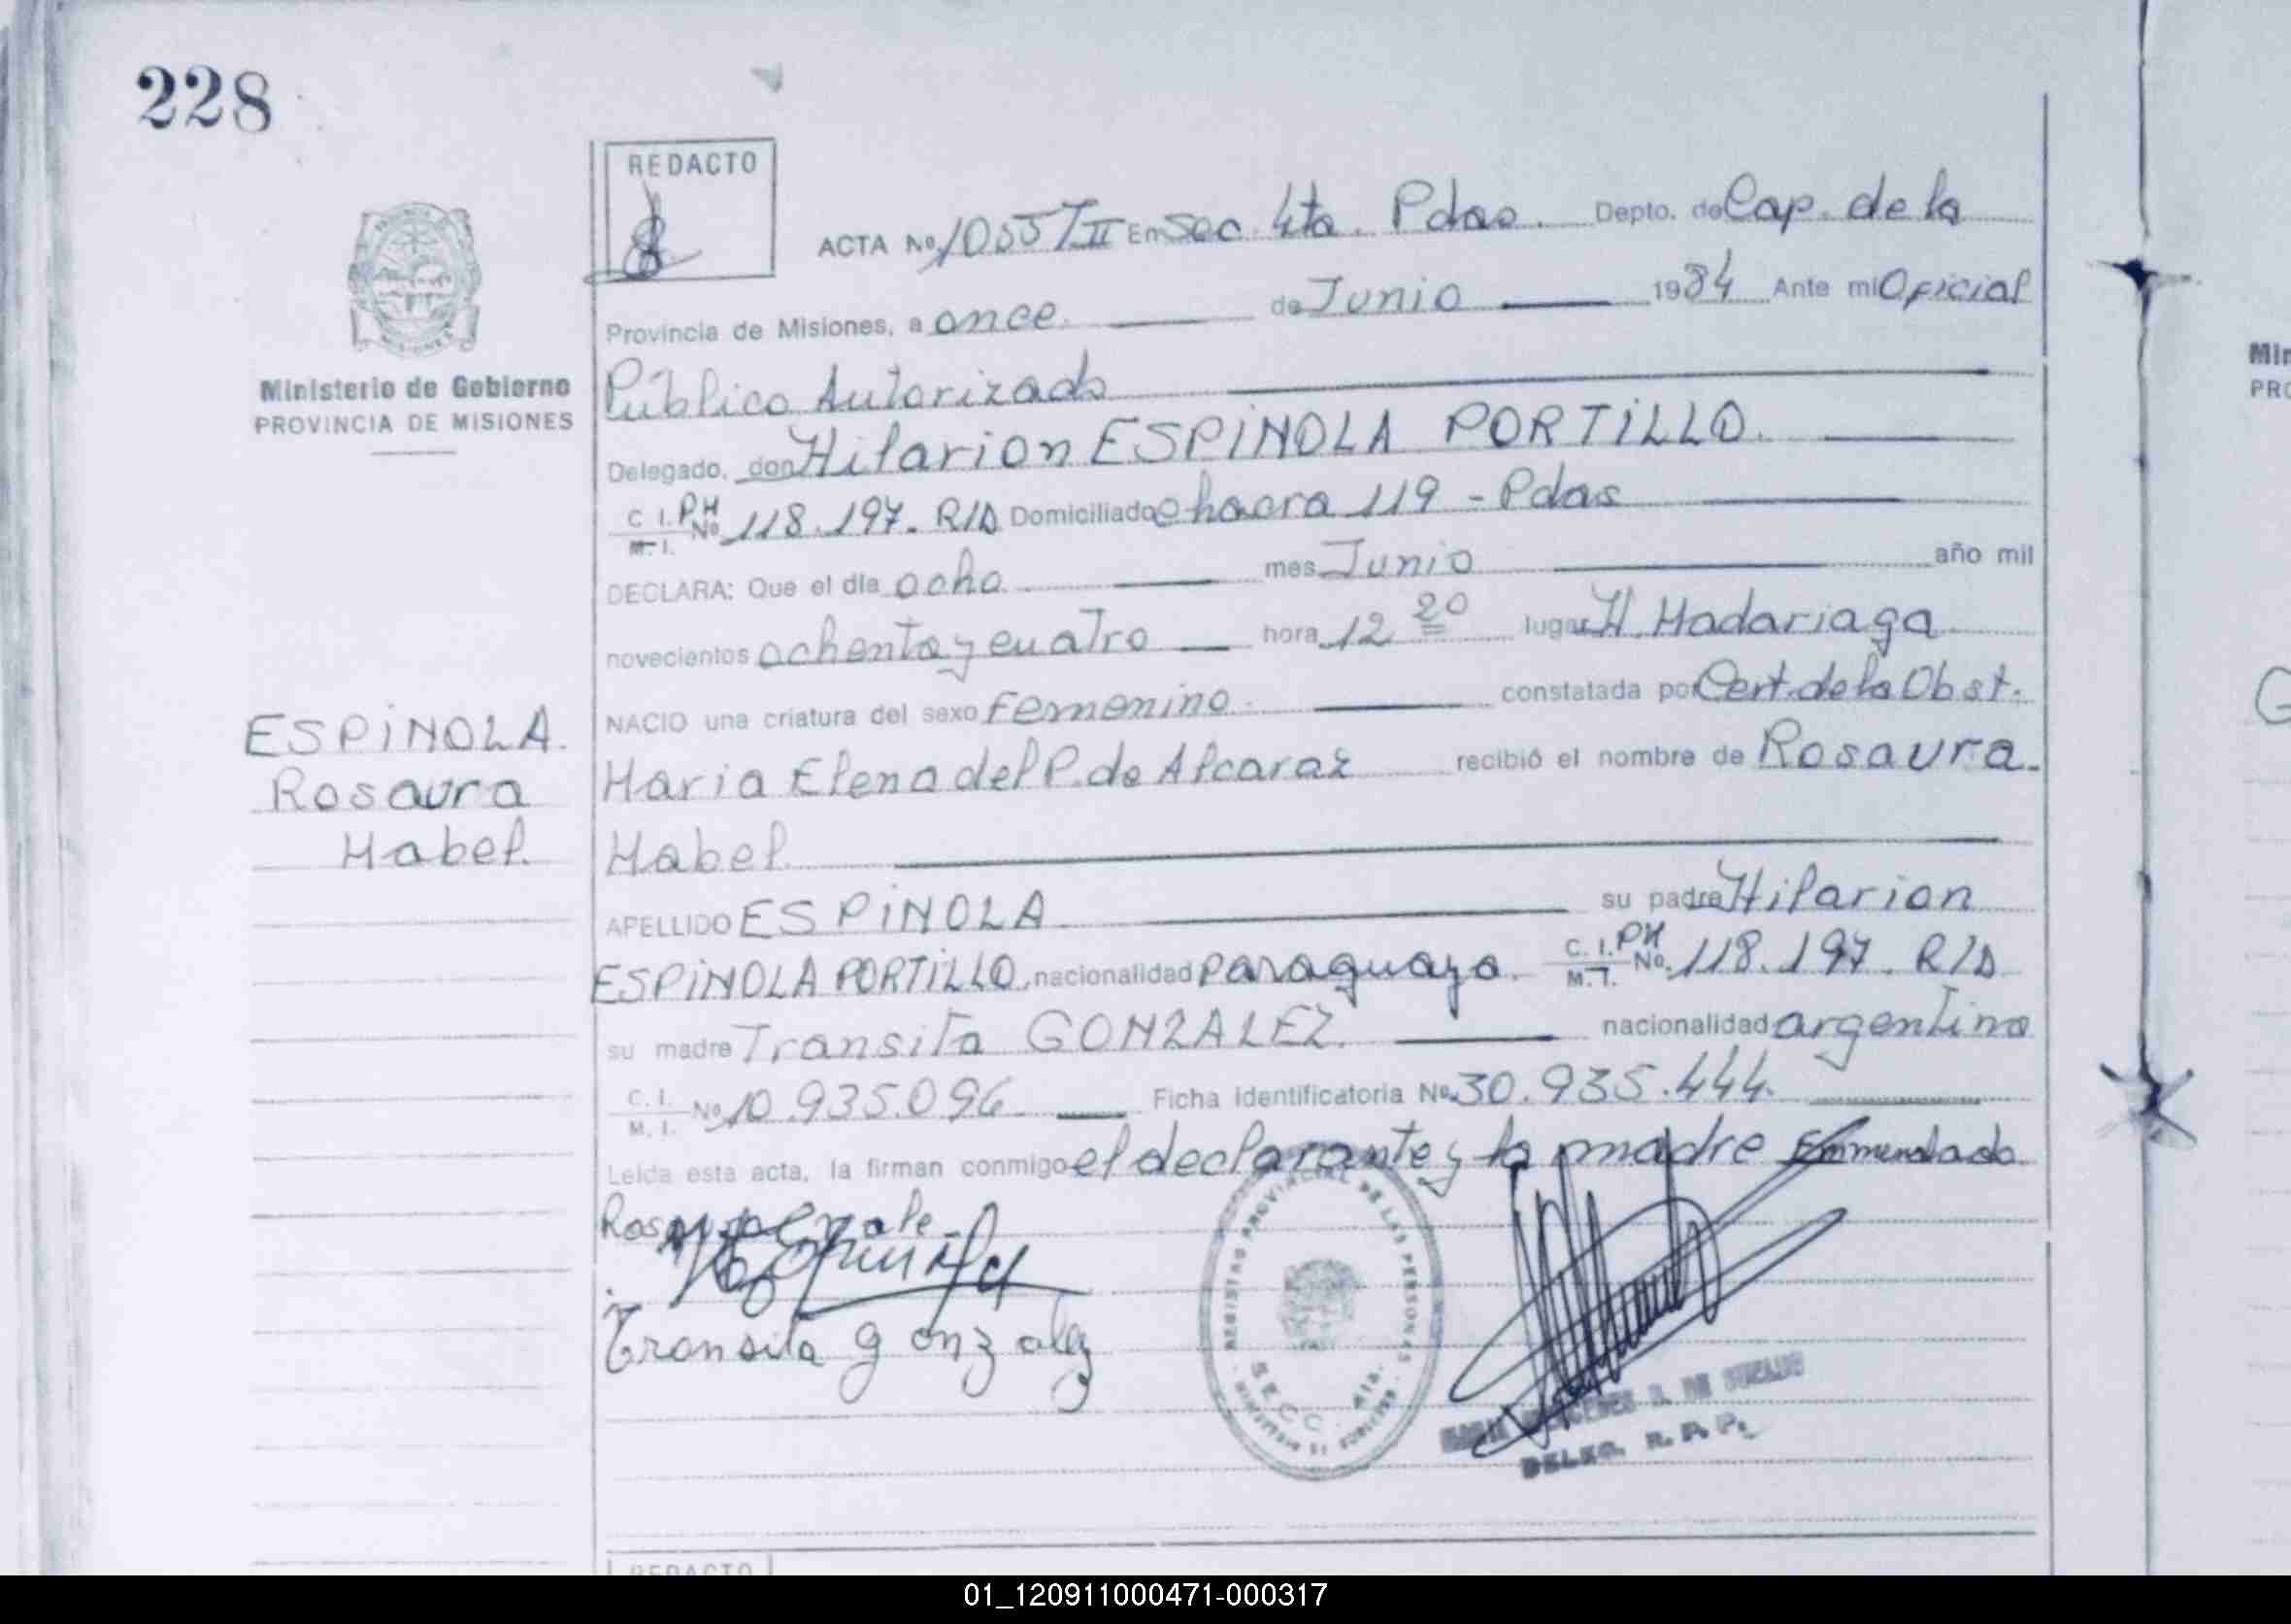 228
REDACTO
ACTA No. 1055/II En Sec. 4ta. Pdas. Depto. de Cap. de la
Provincia de Misiones, a once. de Junio 1984 Ante mi Oficial
Público Autorizado
Delegado, don Hilarion ESPINOLA PORTILLO.
C. I. PH
M. I. No. 118.197. R/D Domiciliado chacra 119 - Pdas
DECLARA: Que el día ocho mes Junio año mil
novecientos ochenta y cuatro hora 12 20 lugar H. Madariaga
NACIO una criatura del sexo femenino. constatada por Cert. de la Obst.
Maria Elena del P. de Alcaraz recibió el nombre de Rosaura.
Mabel.
APELLIDO ESPINOLA su padre Hilarion
ESPINOLA PORTILLO. nacionalidad paraguayo. C. I. PH
M. I. No. 118.197. R/D
su madre Transita GONZALEZ. nacionalidad argentina
C. I.
M. I. No. 10.935.096 Ficha Identificatoria No. 30.935.444.
Leída esta acta, la firman conmigo el declarante y la madre Enmendado
Transita gonzalez
Ministerio de Gobierno
PROVINCIA DE MISIONES
ESPINOLA.
Rosaura
Mabel.
REGISTRO PROVINCIAL DE LAS PERSONAS
SECC. 4ta.
MINISTERIO DE GOBIERNO
DELEG. R. P. P.
REDACTO
Min
PRO
G
01_120911000471-000317